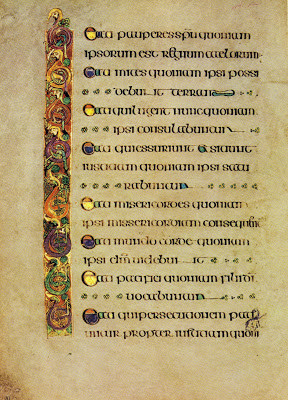 Beati pauperes spu quoniam
ipsorum est regnum caelorum
Beati mites quoniam ipsi possi
debunt terram
Beati qui lugent nunc quoniam
ipsi consulabuntur
Beati qui essuriunt & sitiunt
iustitiam quoniam ipsi satu
rabuntur
Beati misericordes quoniam
ipsi misericordiam consequntur
Beati mundo corde quoniam
ipsi dm videbunt
Beati pacifici quoniam filii di
vocabuntur
Beati qui persecutionem pati
untur propter iustitiam quoni